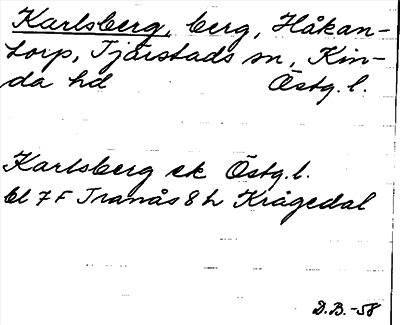 Karlsberg, berg, Håkan-
torp, Tjärstads sn, Kin-
da hd Östg. l.
Karlsberg ek Östg. l.
bl 7 F Tranås 8 h Krågedal
D.B. -58